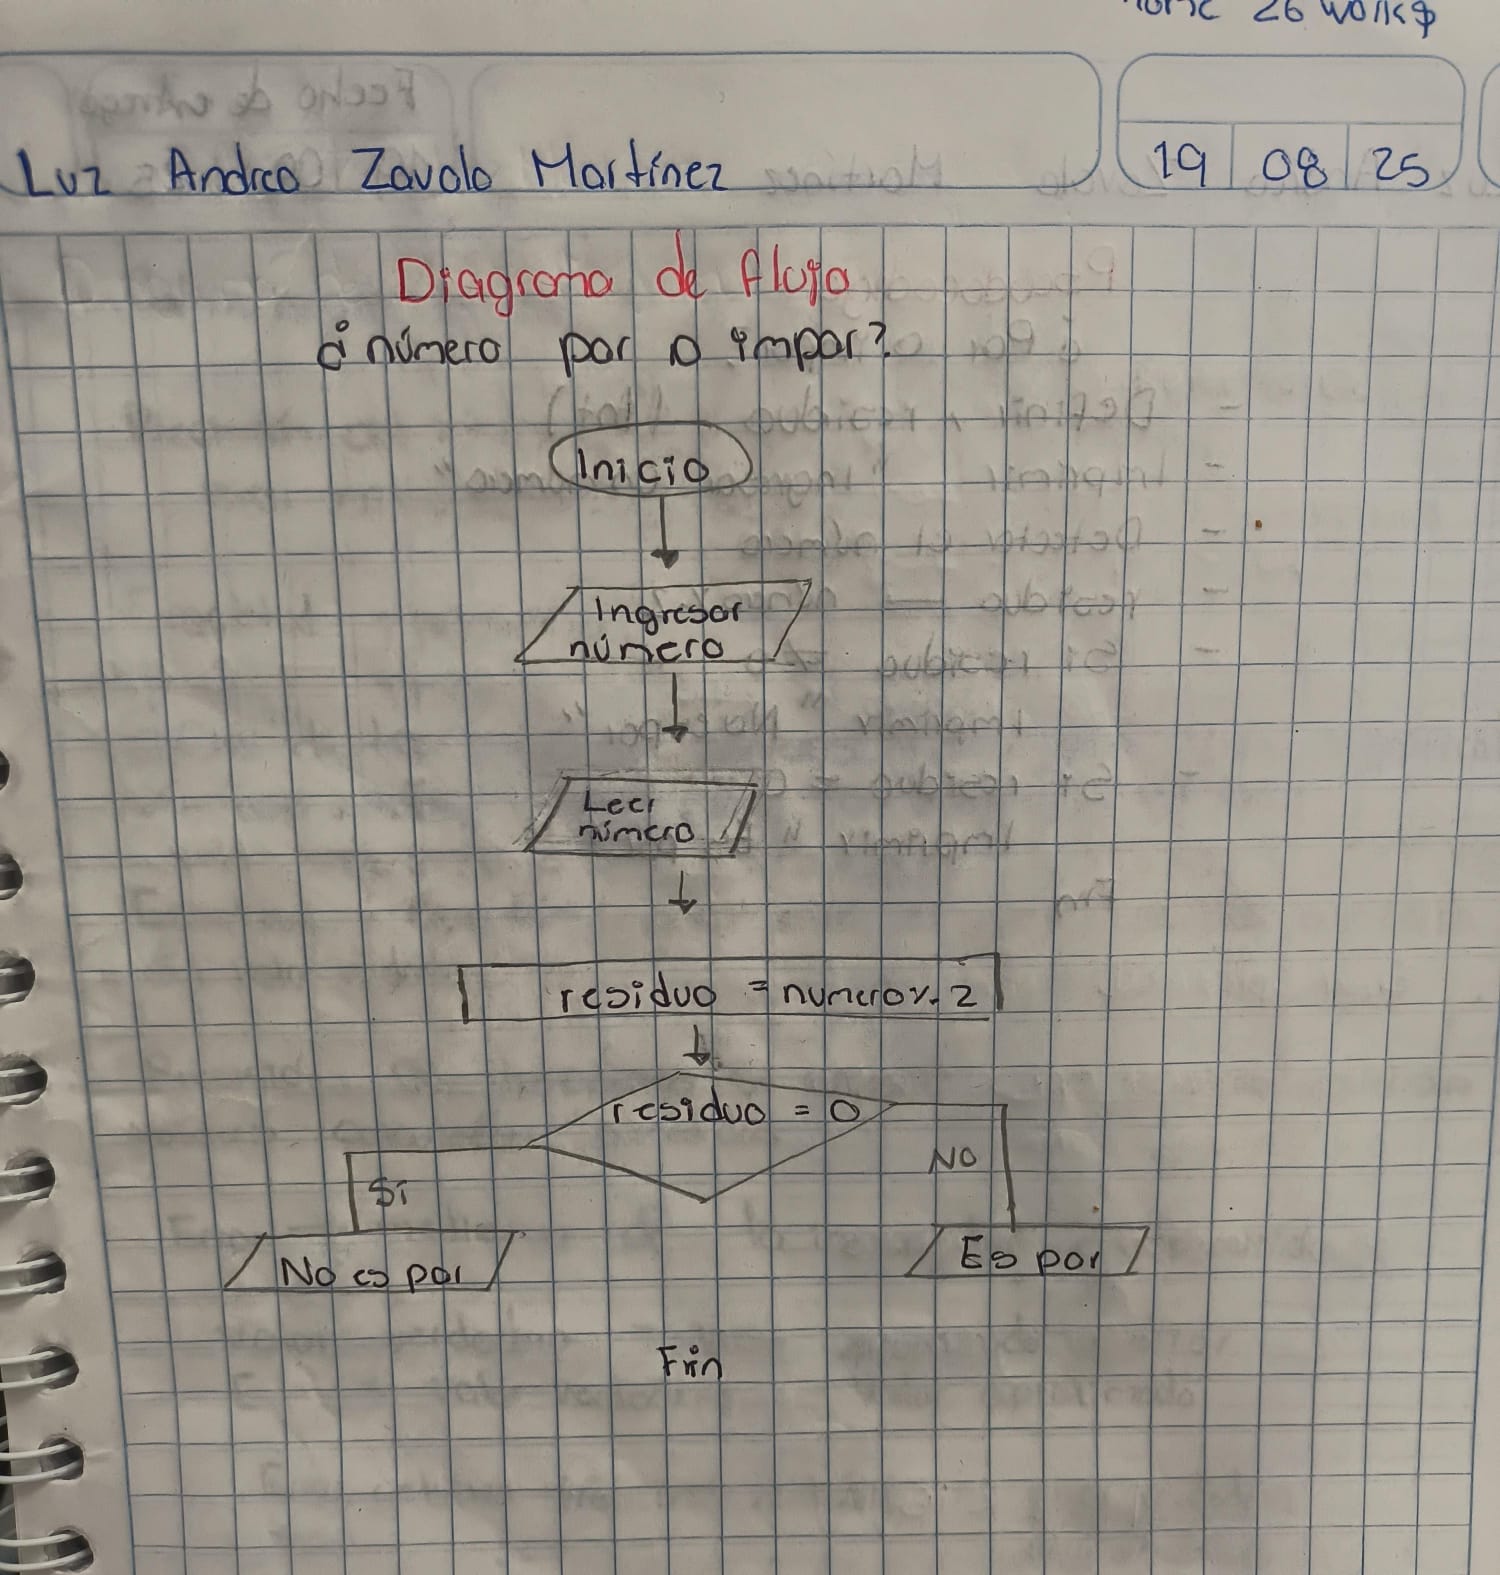 26 works
Luz Andrea Zavala Martínez
19 08 25
Diagrama de flujo
¿número par o impar?
Inicio
Ingresar
número
Leer
número
residuo = numero % 2
residuo = 0
Si
NO
No es par
Es par
Fin